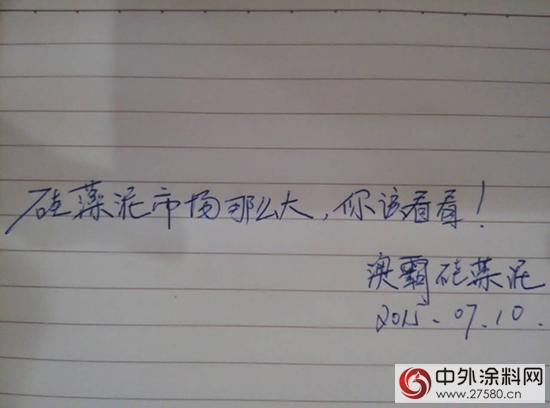 硅藻泥市场那么大，你该看看！
澳霸硅藻泥
2015.07.10.
中外涂料网
www.27580.cn